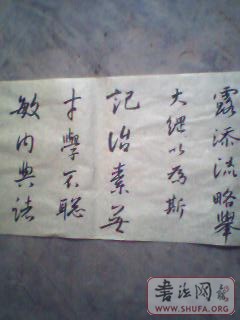 露添流略舉
大綱以為斯
記治素無
才學不聡
敏内典諸
書法网
WWW.SHUFA.ORG